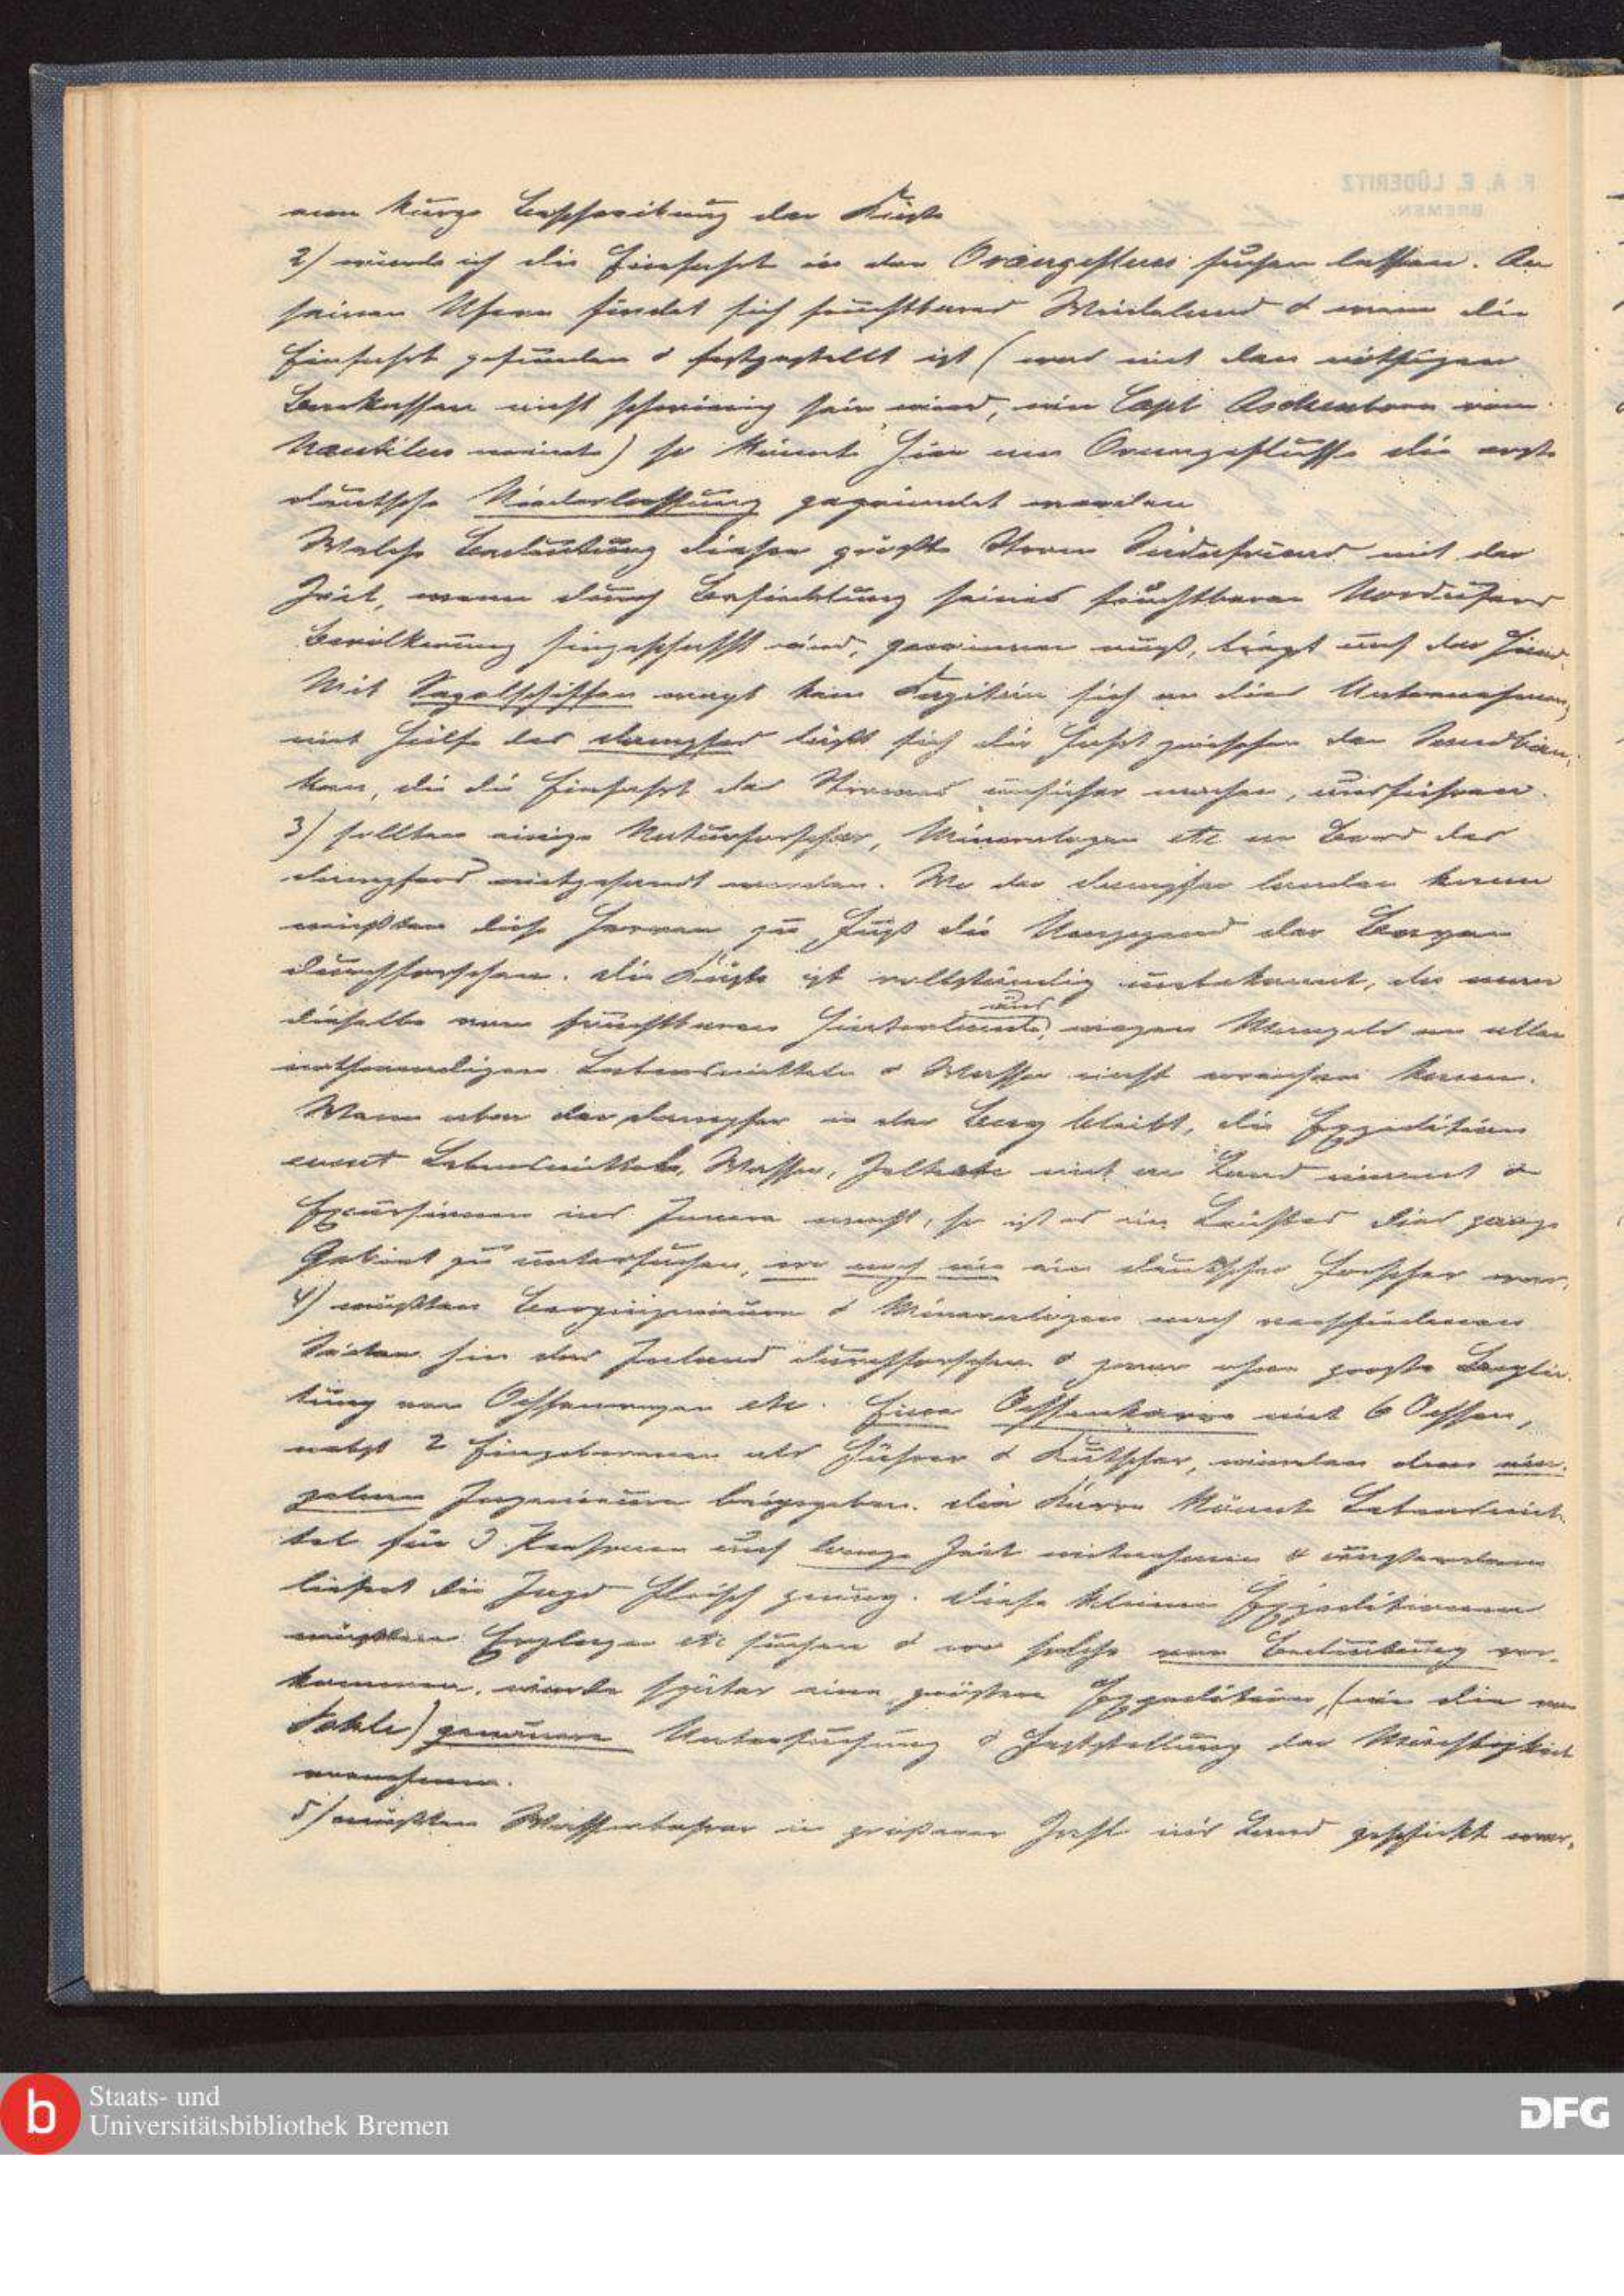 eine kurze Beschreibung der Küste
2) würde ich die Einfahrt in den Orangefluss suchen lassen. An
seinen Ufern findet sich fruchtbares Weideland & wenn die
Einfahrt gefunden & festgestellt ist (was mit den nöthigen
Barkassen nicht schwierig sein wird, wie Capt Aschenborn vom
Nautilus meint) so könnte hier am Orangeflusse die erste
deutsche Niederlassung gegründet werden
Welche Bedeutung dieser größte Strom Südafricas mit der
Zeit, wenn durch Besiedelung seines fruchtbaren Nordufers
Bevölkerung hingeschafft wird, gewinnen muß, liegt auf der Hand.
Mit Segelschiffen wagt kein Kapitän sich an dies Unternehmen,
mit Hülfe des Dampfers läßt sich die Fahrt zwischen den Sandbän-
ken, die die Einfahrt des Stromes unsicher machen, ausführen.
3) sollten einige Naturforscher, Mineralogen etc an Bord des
Dampfers mitgesandt werden. Wo der Dampfer landen kann
müßten diese Herren zu Fuß die Umgegend der Bayen
durchforschen. Die Küste ist vollständig unbekannt, da man
dieselbe vom fruchtbaren Hinterlande aus, wegen Mangels an allen
nothwendigen Lebensmitteln & Wasser nicht erreichen kann.
Wenn aber der Dampfer in der Bay bleibt, die Expedition
event Lebensmittel, Wasser, Zelte etc mit an Land nimmt &
Excursionen ins Innere macht, so ist es ein Leichtes dies ganze
Gebiet zu untersuchen, wo noch nie ein deutscher Forscher war.
4) müßten Bergingenieure & Mineralogen nach verschiedenen
Seiten hin das Inland durchforschen & zwar ohne große Beglei-
tung von Ochsenwagen etc. Eine Ochsenkarre mit 6 Ochsen,
nebst 2 Eingeborenen als Führer & Kutscher, würden dem ein-
zelnen Ingenieure beigegeben. Die Karre könnte Lebensmit-
tel für 3 Personen auf lange Zeit mitnehmen & außerdem
liefert die Jagd Fleisch genug. Diese kleinen Expeditionen
müßten Erzlager etc suchen & wo solche von Bedeutung vor-
kommen, würde später eine größere Expedition, (wie die von
Pohle) genauere Untersuchung & Feststellung der Mächtigkeit
vornehmen.
5) müßten Wasserbohrer in größerer Zahl in's Land geschickt wer-
F. A. E. LÜDERITZ
BREMEN.
Staats- und
Universitätsbibliothek Bremen
DFG